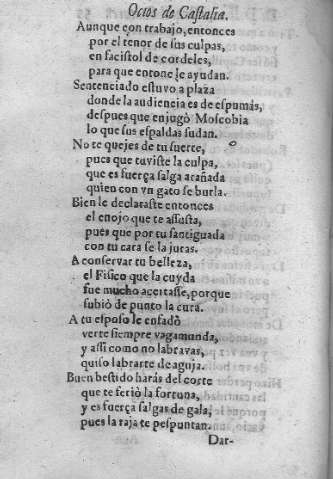 Ocios de Castalia.
Aunque con trabajo, entonces
por el tenor de sus culpas,
en facistol de cordeles,
para que entone le ayudan.
Sentenciado estuvo a plaza
donde la audiencia es de espumas,
despues que enjugò Moscobia
lo que sus espaldas sudan.
No te quejes de tu suerte,
pues que tuviste la culpa,
que es fuerça salga arañada
quien con vn gato se burla.
Bien le declaraste entonces
el enojo que te assusta,
pues que por tu santiguada
con tu cara se la juras.
A conservar tu belleza,
el Fisico que la cuyda
fue mucho acertasse, porque
subiò de punto la cura.
A tu esposo le enfadò
verte siempre vagamunda,
y assi como no labravas,
quiso labrarte de aguja.
Buen bestido haràs del corte
que te feriò la fortuna,
y es fuerça salgas de gala,
pues la raja te pespuntan.
Dar-